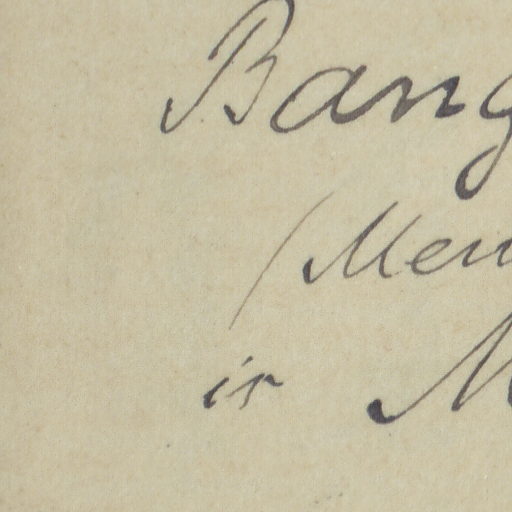 Bang
(Men
ir M